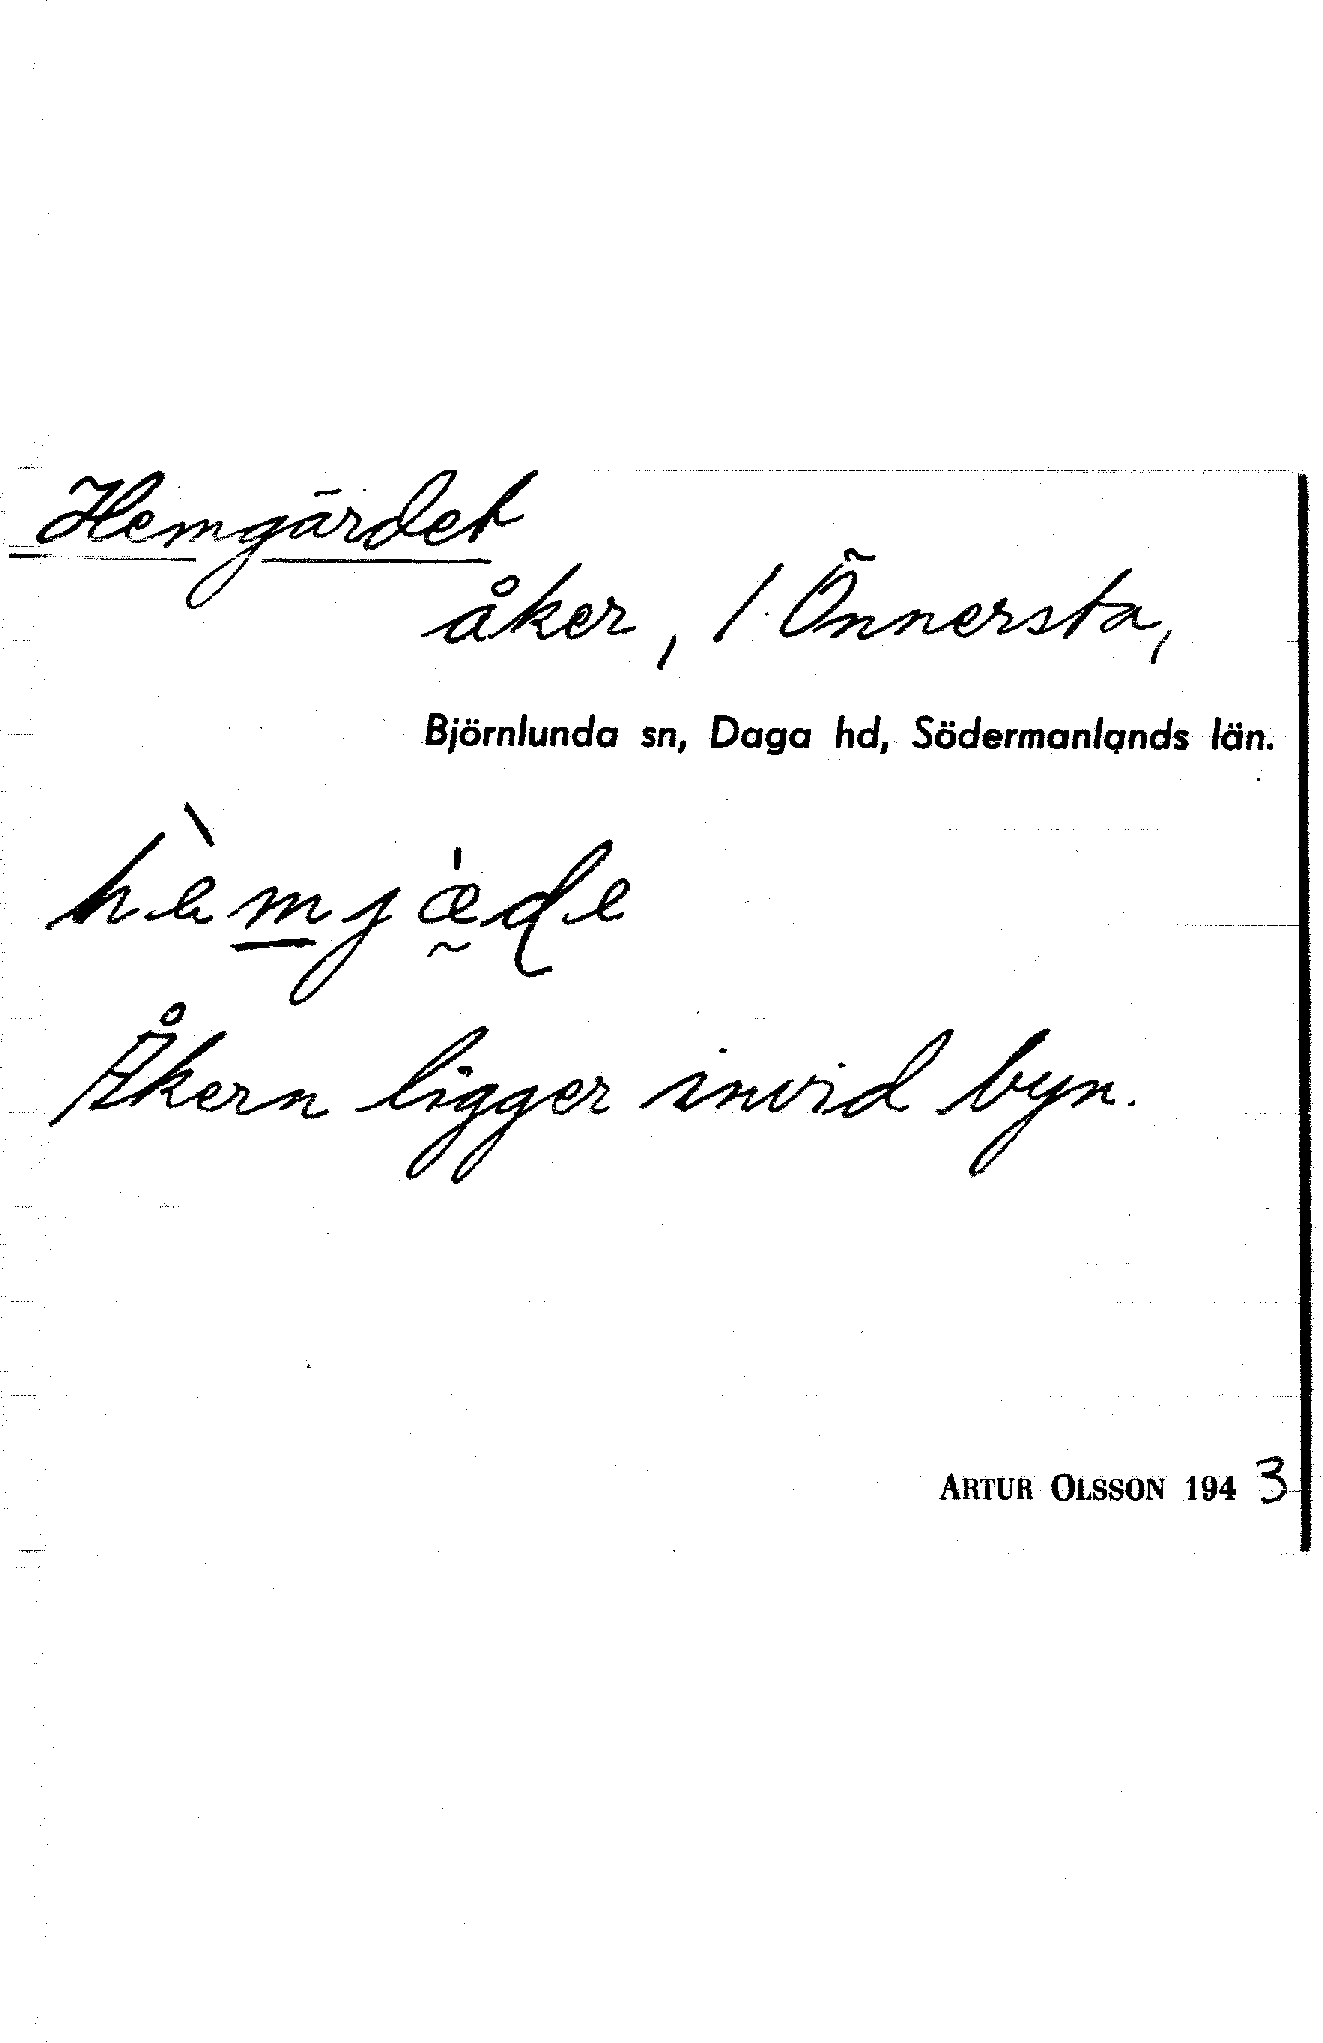 Hemgärdet
åker, / Önnersta,
Björnlunda sn, Daga hd, Södermanlands län.
hèmjæ̰̍ɖe
Åkern ligger invid byn.
ARTUR OLSSON 1943